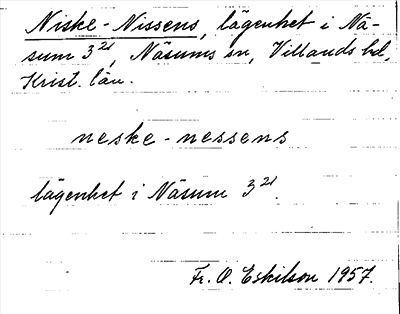 Niske-Nissens, lägenhet i Nä-
sum 3²¹, Näsums sn, Villands hd,
Krist. län.
neske-nessens
lägenhet i Näsum 3²¹.
Fr. O. Eskilson 1957.